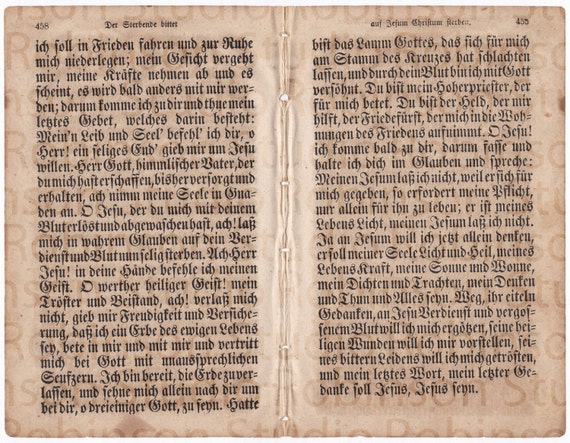 458 Der Sterbende bittet
ich soll in Frieden fahren und zur Ruhe
mich niederlegen; mein Gesicht vergeht
mir, meine Kräfte nehmen ab und es
scheint, es wird bald anders mit mir wer-
den; darum komme ich zu dir und thue mein
letztes Gebet, welches darin besteht:
Mein'n Leib und Seel' befehl' ich dir, o
Herr! ein seliges End' gieb mir um Jesu
willen. Herr Gott, himmlischer Vater, der
du mich hast erschaffen, bisher versorgt und
erhalten, ach nimm meine Seele in Gna-
den an. O Jesu, der du mich mit deinem
Blut erlöst und abgewaschen hast, ach! laß
mich in wahrem Glauben auf dein Ver-
dienst und Blut nun selig sterben. Ach Herr
Jesu! in deine Hände befehle ich meinen
Geist. O werther heiliger Geist! mein
Tröster und Beistand, ach! verlaß mich
nicht, gieb mir Freudigkeit und Versiche-
rung, daß ich ein Erbe des ewigen Lebens
sey, bete in mir und mit mir und vertritt
mich bei Gott mit unaussprechlichen
Seufzern. Ich bin bereit, die Erde zu ver-
lassen, und sehne mich allein nach dir um
bei dir, o dreieiniger Gott, zu seyn. Hatte
auf Jesum Christum sterben. 455
bist das Lamm Gottes, das sich für mich
am Stamm des Kreuzes hat schlachten
lassen, und durch dein Blut bin ich mit Gott
versöhnt. Du bist mein Hoherpriester, der
für mich betet. Du bist der Held, der mir
hilft, der Friedefürst, der mich in die Woh-
nungen des Friedens aufnimmt. O Jesu!
ich komme bald zu dir, darum fasse und
halte ich dich im Glauben und spreche:
Meinen Jesum laß ich nicht, weil er sich für
mich gegeben, so erfordert meine Pflicht,
nur allein für ihn zu leben; er ist meines
Lebens Licht, meinen Jesum laß ich nicht.
Ja an Jesum will ich jetzt allein denken,
er soll meiner Seele Licht und Heil, meines
Lebens Kraft, meine Sonne und Wonne,
mein Dichten und Trachten, mein Denken
und Thun und Alles seyn. Weg, ihr eiteln
Gedanken, an Jesu Verdienst und vergos-
senem Blut will ich mich ergötzen, seine hei-
ligen Wunden will ich mir vorstellen, sei-
nes bittern Leidens will ich mich getrösten,
und mein letztes Wort, mein letzter Ge-
danke soll Jesus, Jesus seyn.